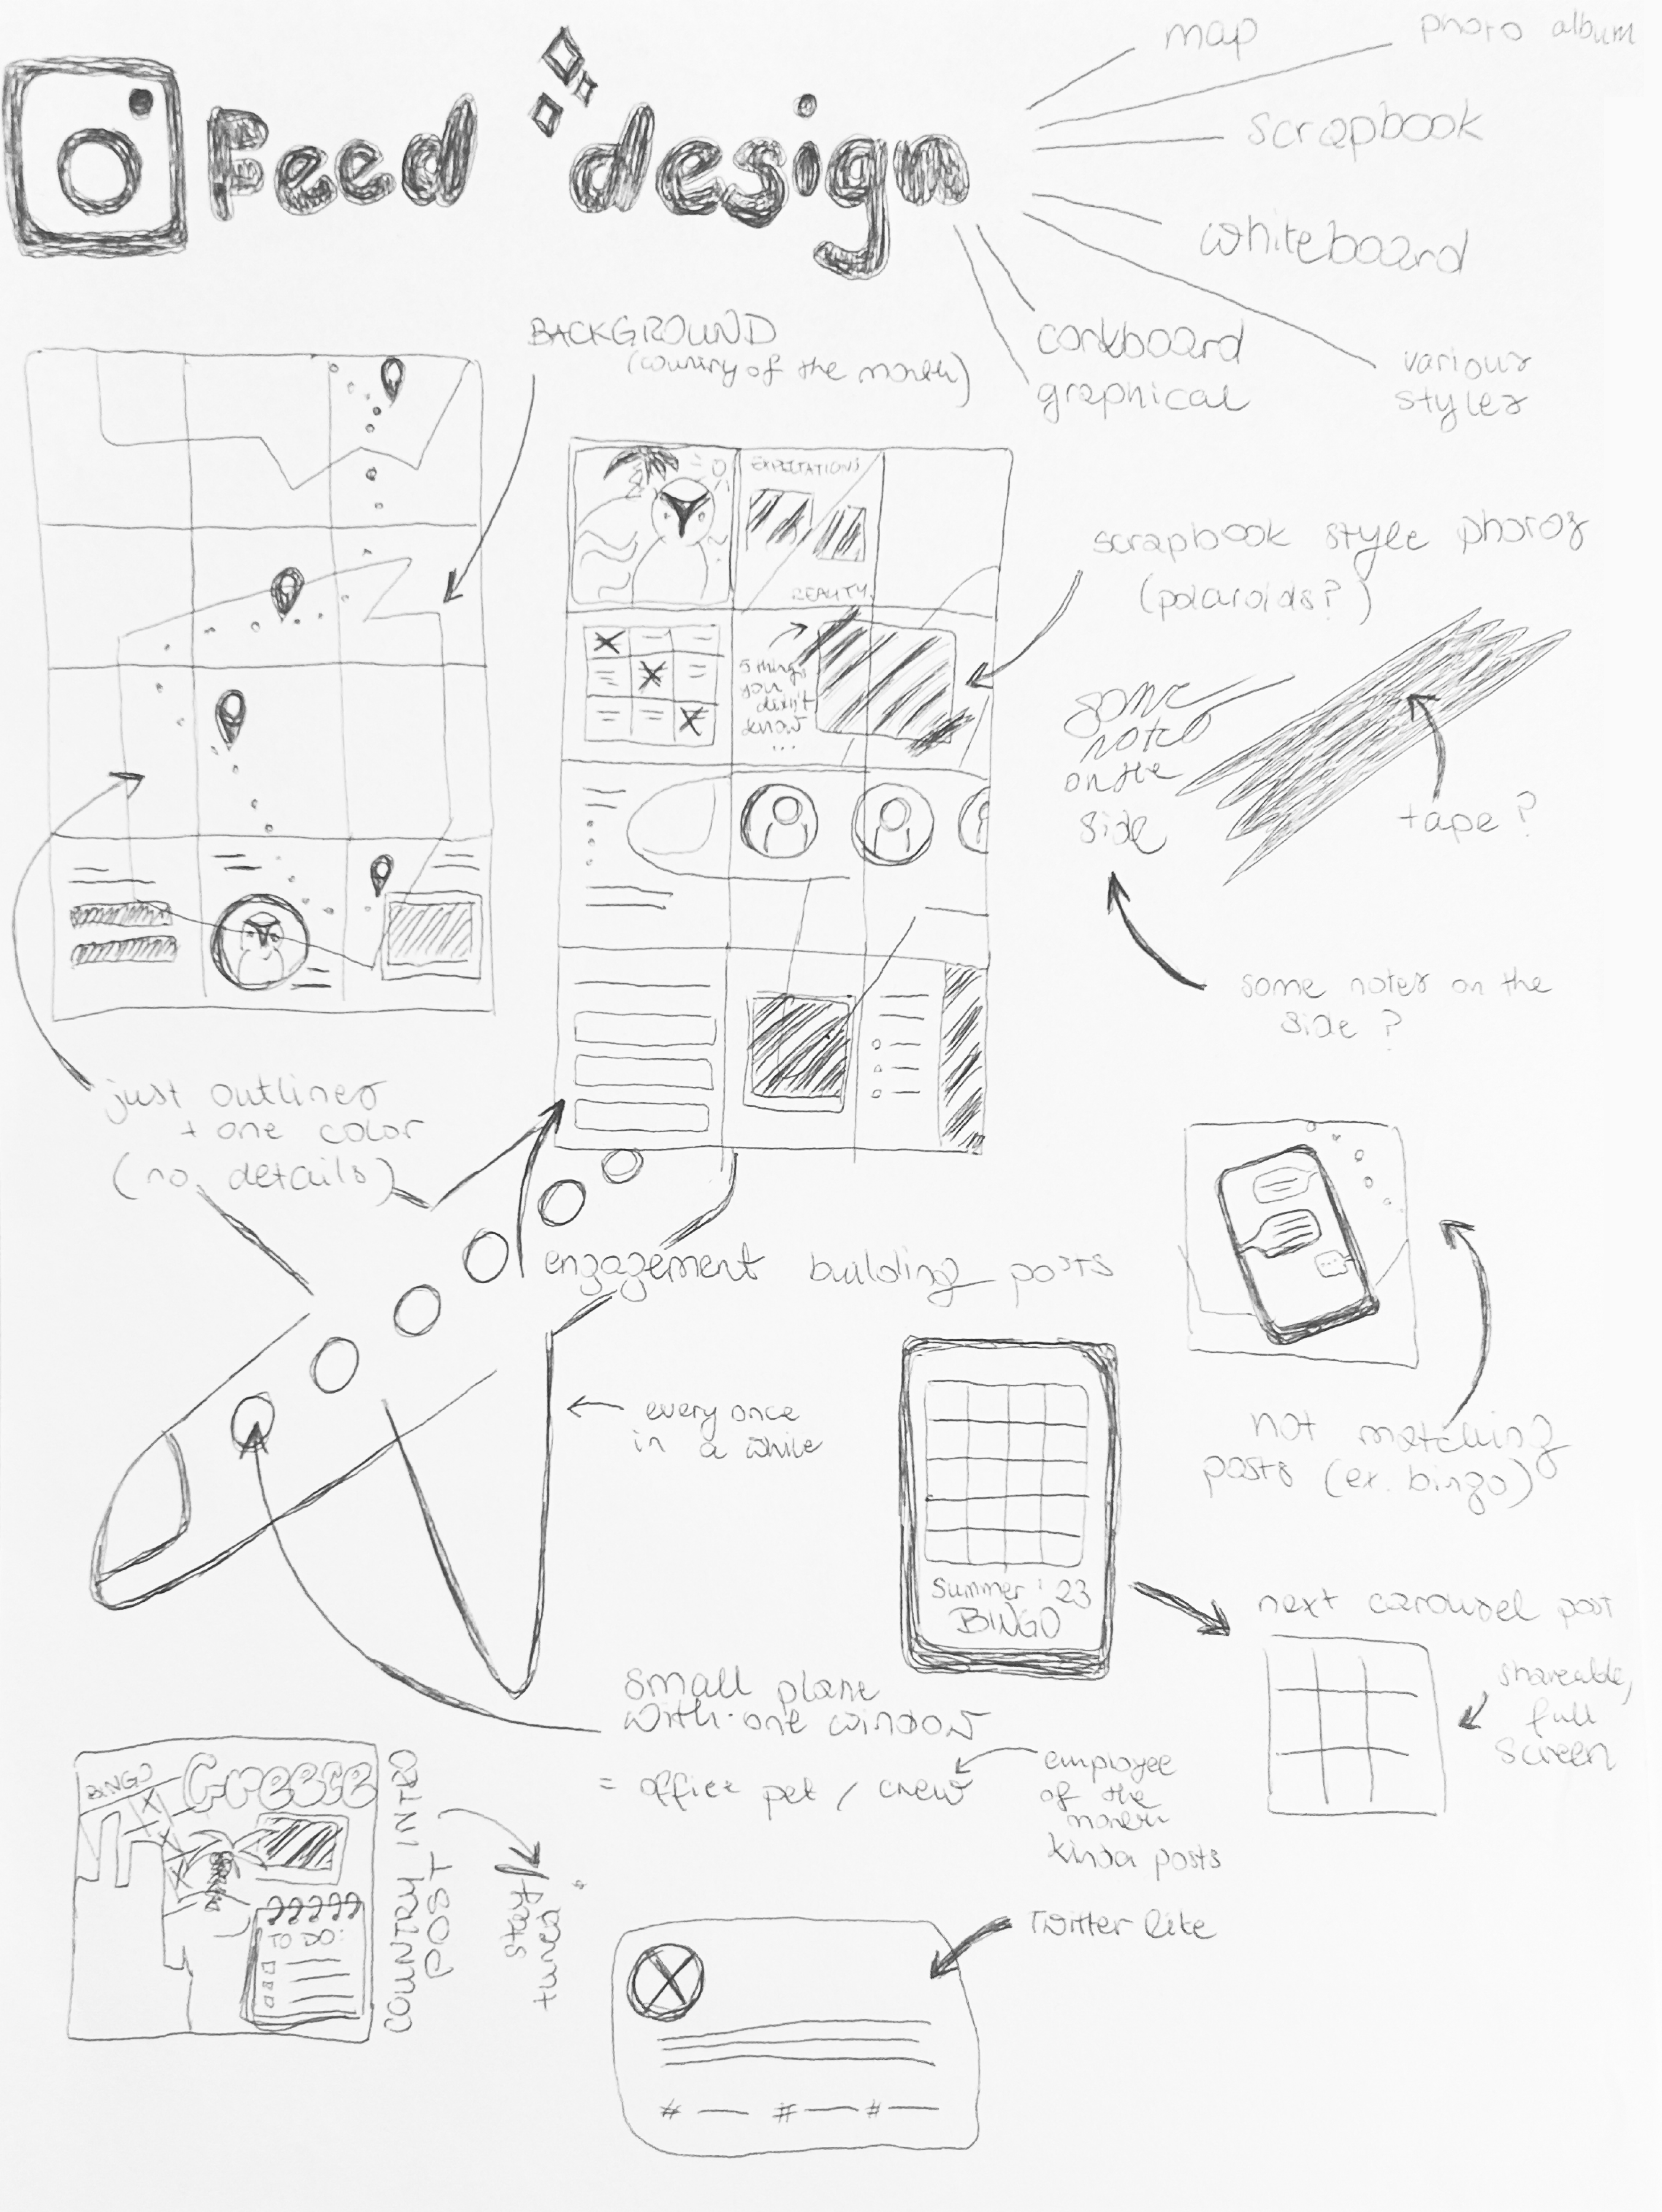 Feed design
map
photo album
scrapbook
whiteboard
corkboard
graphical
various
styles
BACKGROUND
(country of the month)
EXPECTATIONS
REALITY
scrapbook style photos
(polaroids?)
5 things
you
didn't
know
...
some
notes
on the
side
tape?
some notes on the
side?
just outlines
+ one color
(no details)
engagement building posts
every once
in a while
not matching
posts (ex. bingo)
Summer '23
BINGO
next carousel post
shareable,
full
screen
small plane
with one window
= office pet / crew
employee
of the
month
kinda posts
BINGO
Greece
TO DO:
COUNTRY INTRO
POST
stay
tuned
Twitter like
# # #